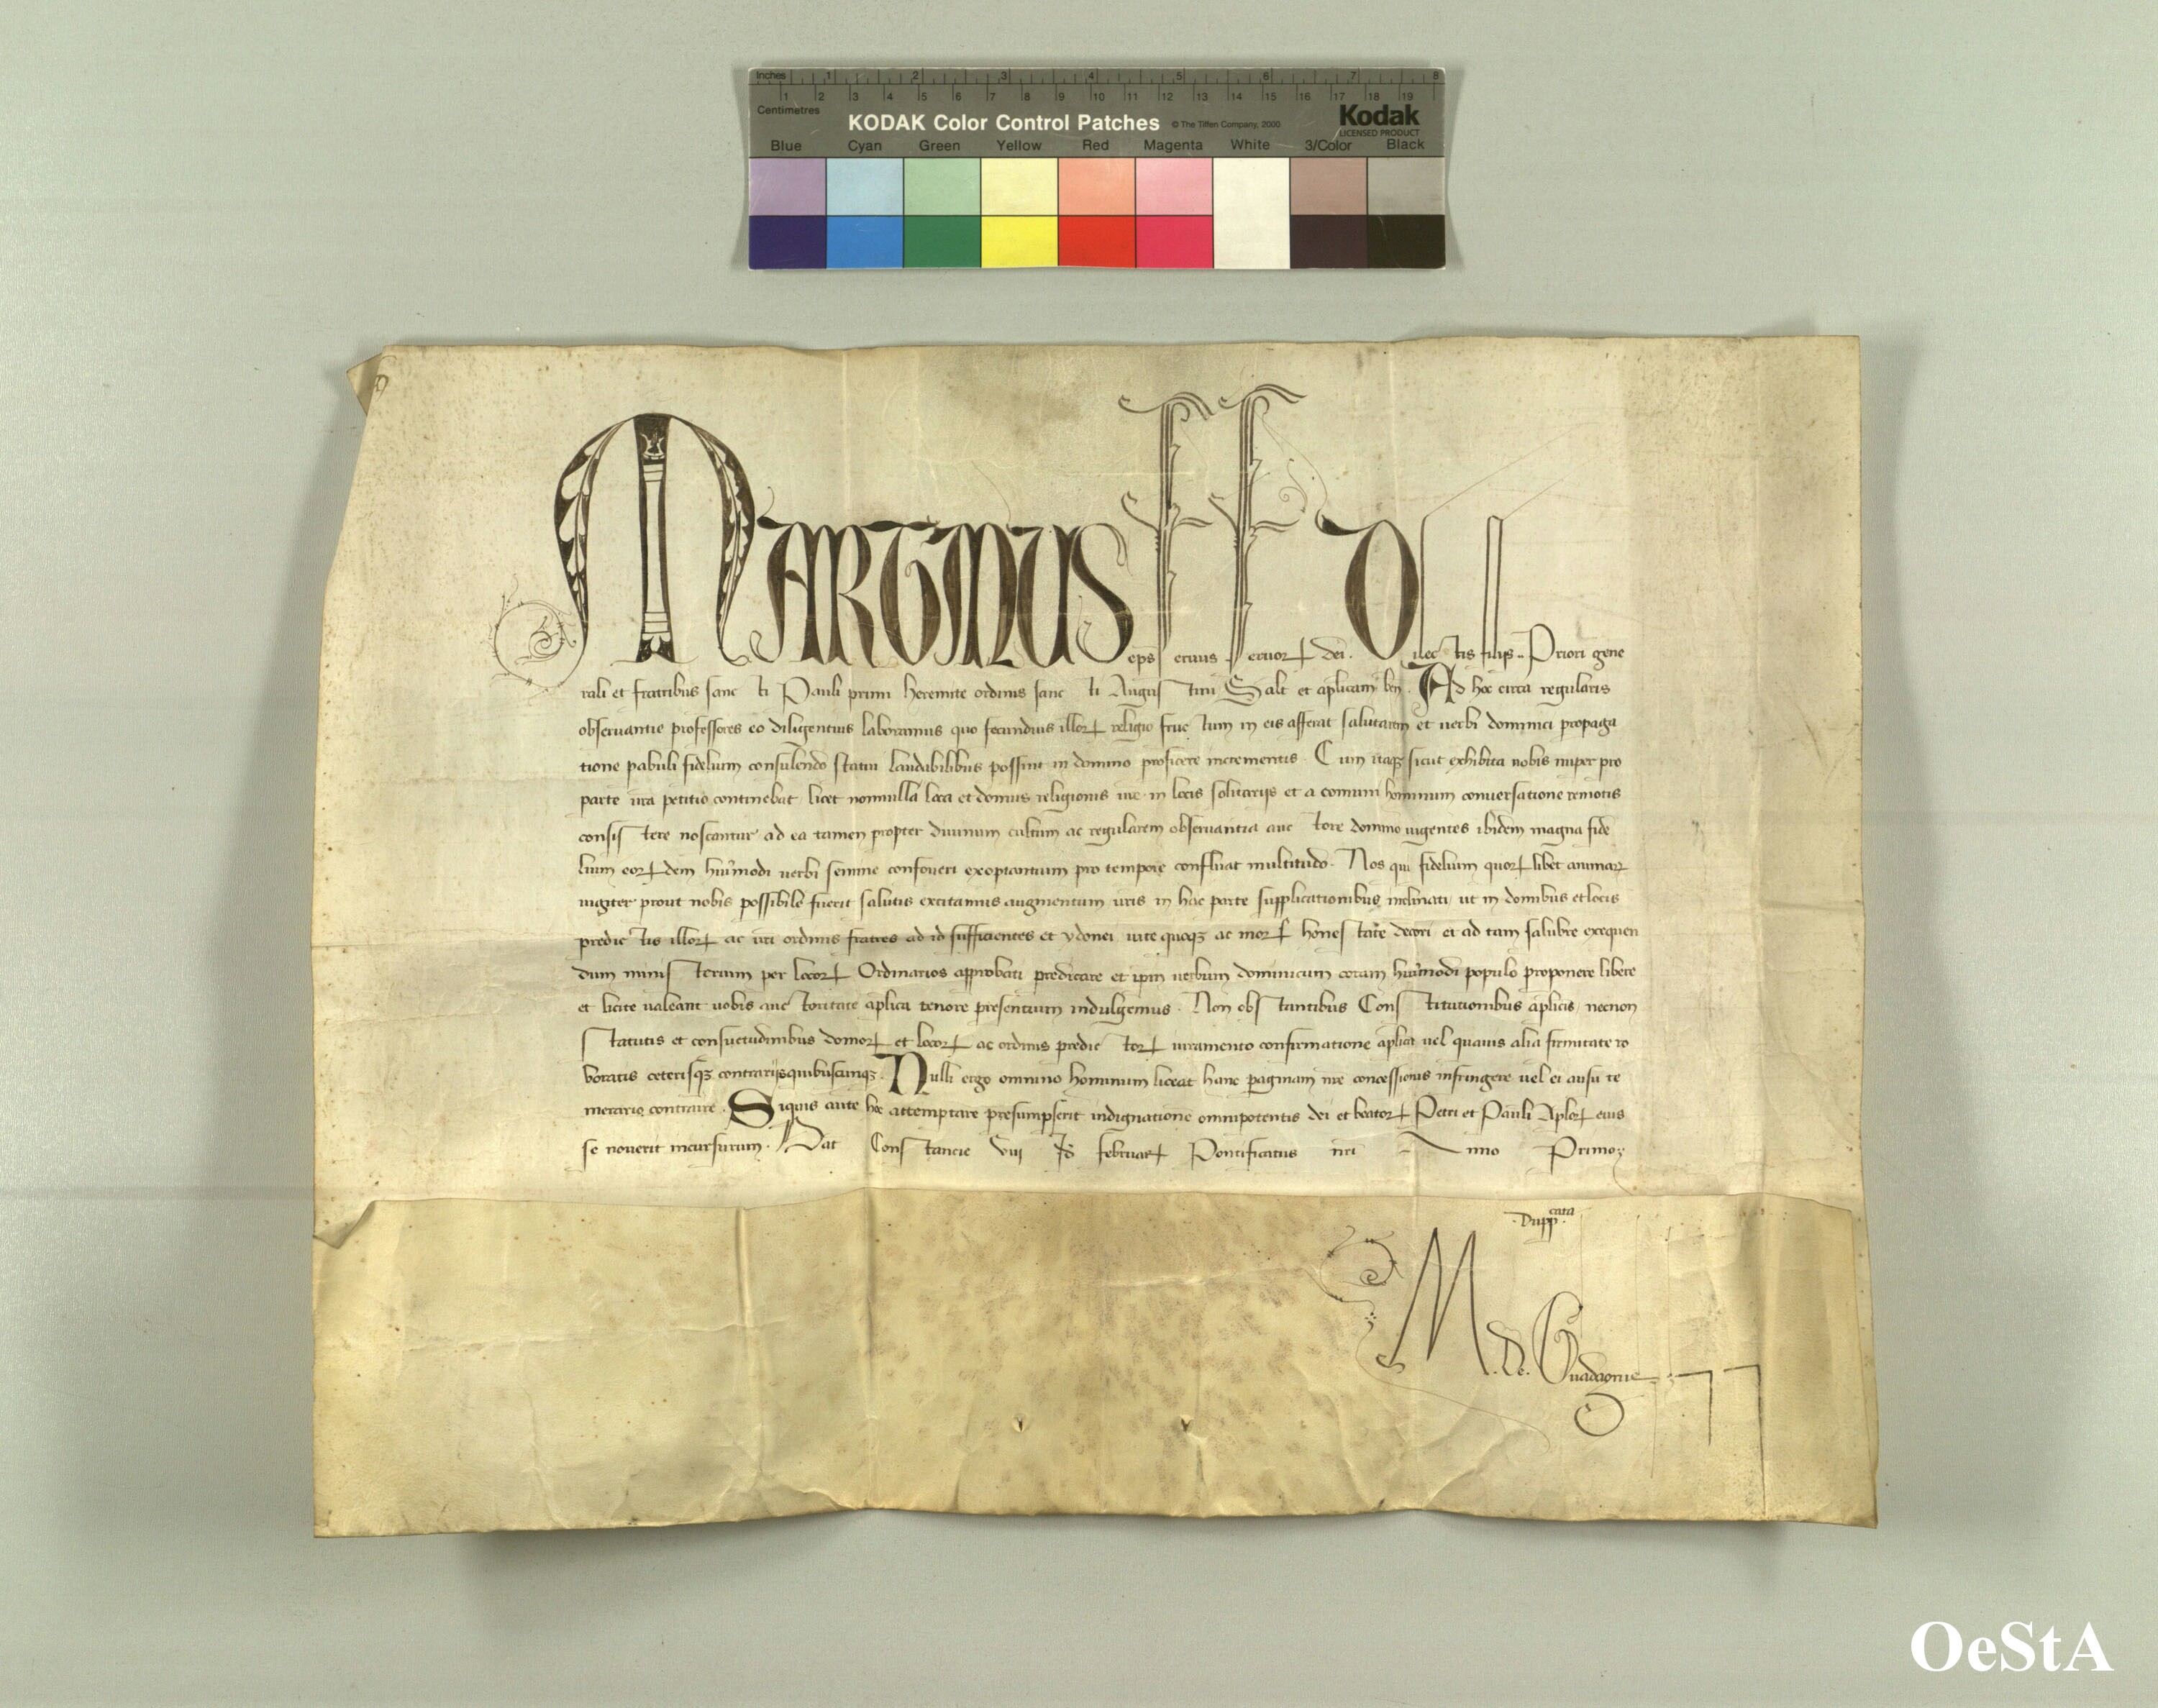 Inches 1 2 3 4 5 6 7 8
1 2 3 4 5 6 7 8 9 10 11 12 13 14 15 16 17 18 19
Centimetres
KODAK Color Control Patches © The Tiffen Company, 2000 Kodak
LICENSED PRODUCT
Blue Cyan Green Yellow Red Magenta White 3/Color Black
MARTINUS eps seruus seruorꝝ dei. Dilectis filijs .. Priori gene
rali et fratribus sancti Pauli primi heremite ordinis sancti Augustini Salt et aplicam ben. Ad hoc circa regularis
obseruantie professores eo diligentius laboramus quo fecundius illorꝝ religio fructum in eis afferat salutarem et uerbi dominici propaga
tione pabuli fidelium consulendo statui laudabilibus possint in domino proficere incrementis. Cum itaqꝫ sicut exhibita nobis nuper pro
parte ura petitio continebat licet nonnulla loca et domus religionis ure in locis solitarijs et a comuni hominum conuersatione remotis
consistere noscantur ad ea tamen propter diuinum cultum ac regularem obseruantia auctore domino uigentes ibidem magna fide
lium eorꝝdem huiusmodi uerbi semine confoueri exoptantium pro tempore confluat multitudo. Nos qui fidelium quorꝝlibet animarꝝ
iugiter prout nobis possibile fuerit salutis excitamus augmentum uris in hac parte supplicationibus inclinati ut in domibus et locis
predictis illorꝝ ac uri ordinis fratres ad id sufficientes et ydonei uite quoqꝫ ac morꝝ honestate decori et ad tam salubre exequen
dum ministerium per locorꝝ Ordinarios approbati predicare et ipm uerbum dominicum coram huiusmodi populo proponere libere
et licite ualeant uobis auctoritate aplica tenore presentium indulgemus. Non obstantibus Constitutionibus aplicis necnon
statutis et consuetudinibus domorꝝ et locorꝝ ac ordinis predictorꝝ iuramento confirmatione aplica uel quauis alia firmitate ro
boratis ceterisqꝫ contrarijs quibuscunqꝫ. Nulli ergo omnino hominum liceat hanc paginam nre concessionis infringere uel ei ausu te
merario contraire. Siquis aute hoc attemptare presumpserit indignatione omnipotentis dei et beatorꝝ Petri et Pauli Aplorꝝ eius
se nouerit incursurum. Dat Constancie viij Id februarꝝ Pontificatus nri Anno Primo
Dupp cata
M. de. Guadagnie
OeStA